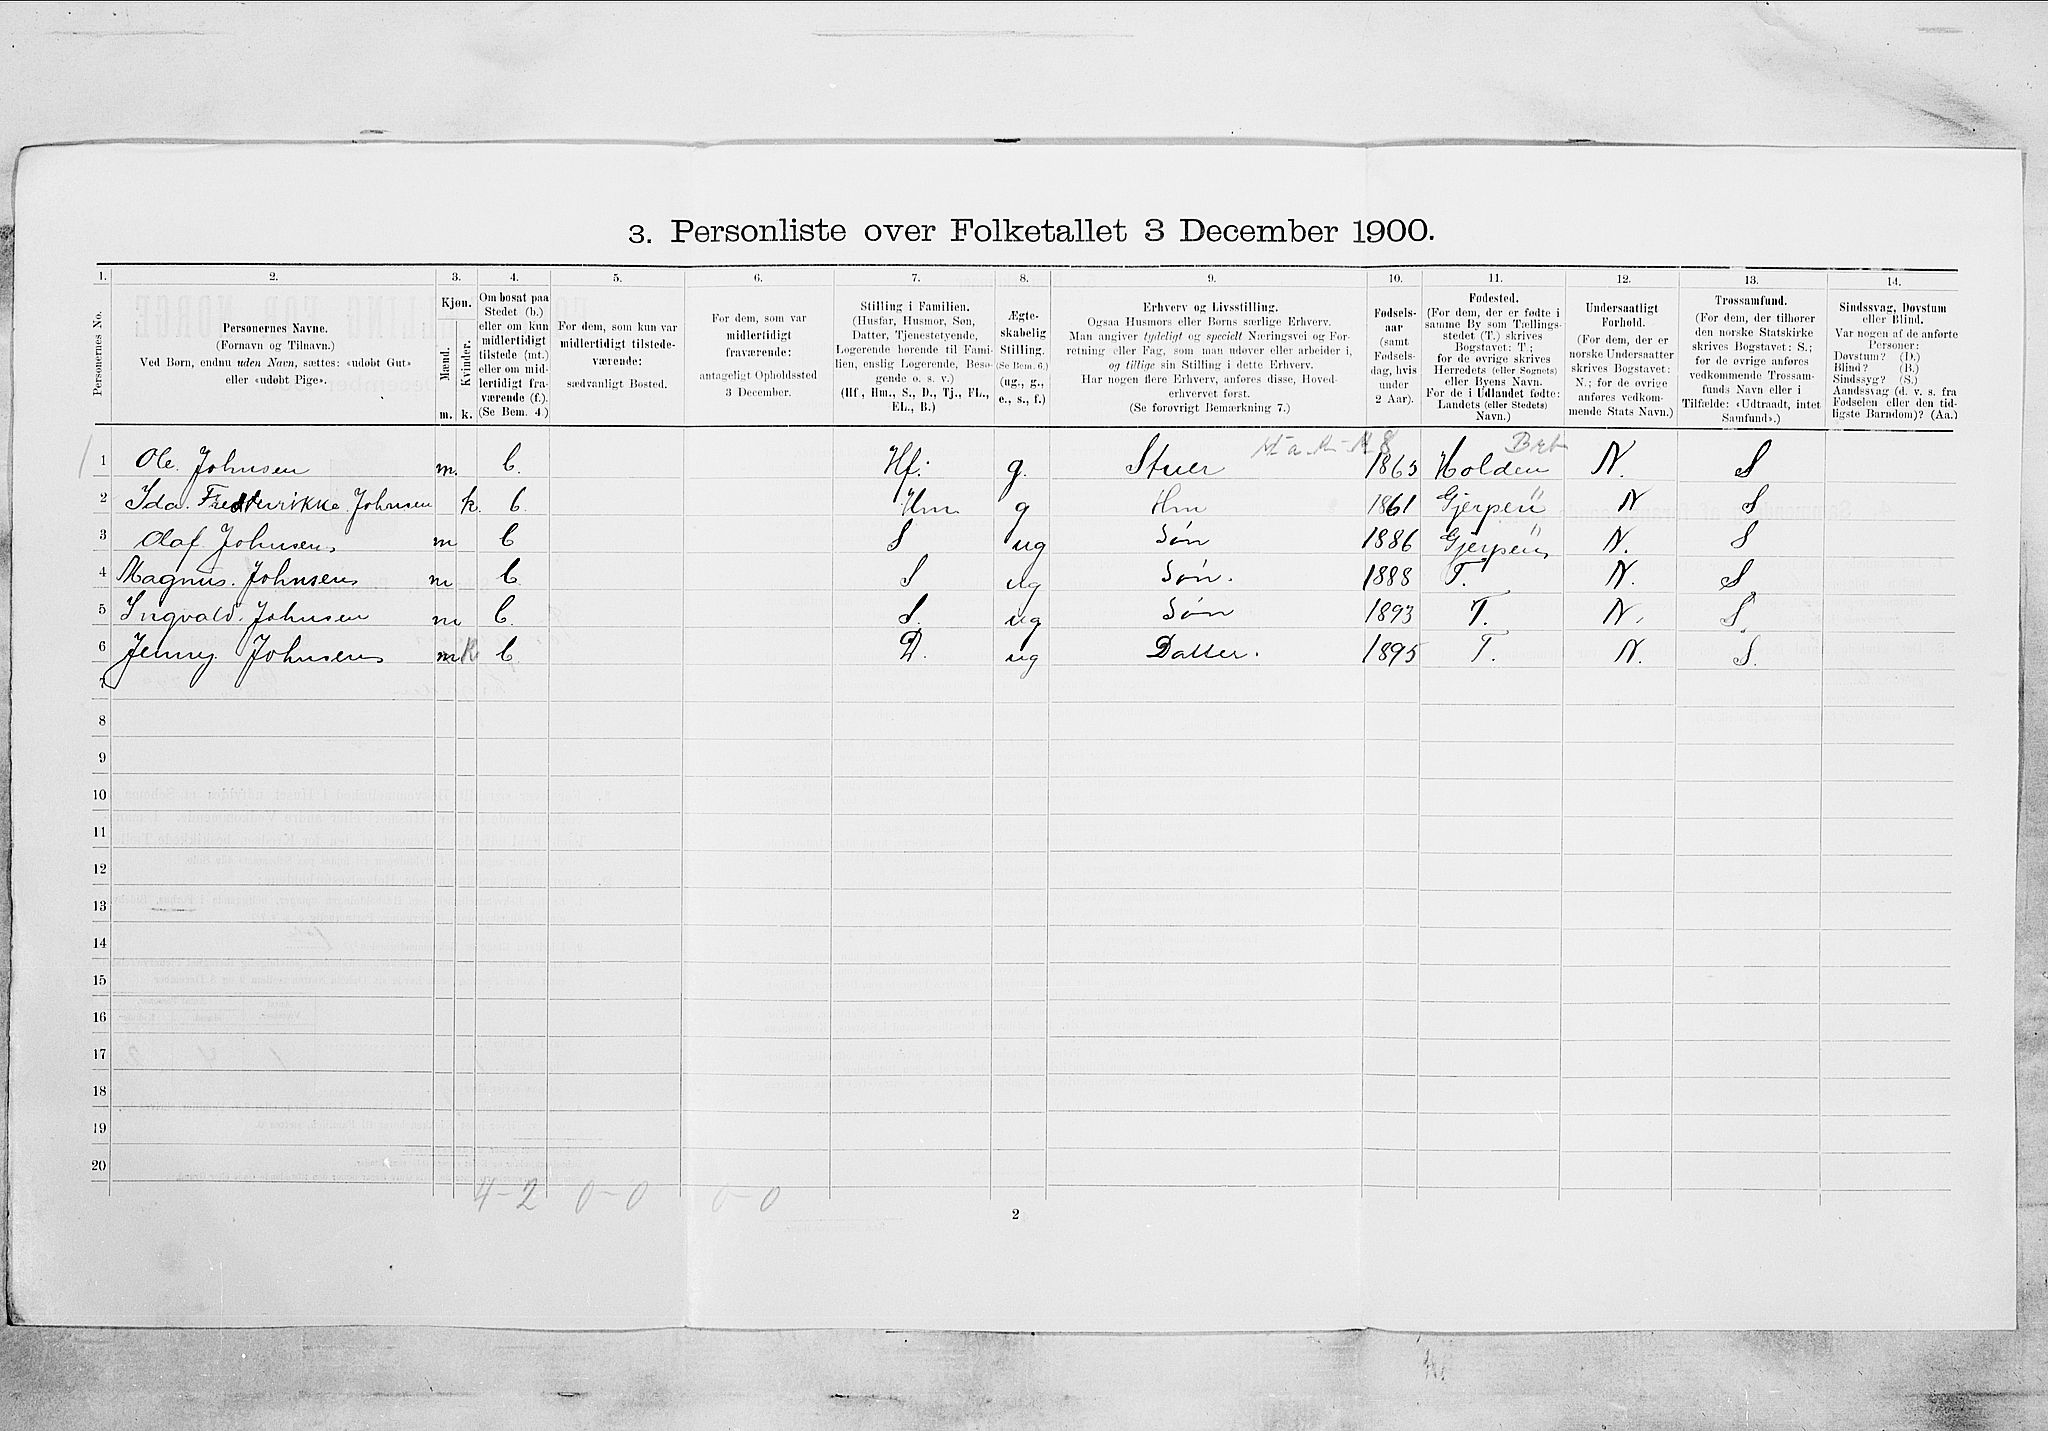 3. Personliste over Folketallet 3 December 1900.
1. 2. 3. 4. 5. 6. 7. 8. 9. 10. 11. 12. 13. 14.
Personernes No.
Personernes Navne.
(Fornavn og Tilnavn.)
Ved Børn, endnu uden Navn, sættes: «udøbt Gut»
eller «udøbt Pige».
Kjøn.
Mænd.
Kvinder.
m. k.
Om bosat paa
Stedet (b.)
eller om kun
midlertidigt
tilstede (mt.)
eller om mid-
lertidigt fra-
værende (f.).
(Se Bem. 4.)
For dem, som kun var
midlertidigt tilstede-
værende:
sædvanligt Bosted.
For dem, som var
midlertidigt
fraværende:
antageligt Opholdssted
3 December.
Stilling i Familien.
(Husfar, Husmor, Søn,
Datter, Tjenestetyende,
Logerende hørende til Fami-
lien, enslig Logerende, Besø-
gende o. s. v.)
(Hf., Hm., S., D., Tj., FL.,
EL., B.)
Ægte-
skabelig
Stilling.
(Se Bem. 6.)
(ug., g.,
e., s., f.)
Erhverv og Livsstilling.
Ogsaa Husmors eller Børns særlige Erhverv.
Man angiver tydeligt og specielt Næringsvei og For-
retning eller Fag, som man udøver eller arbeider i,
og tillige sin Stilling i dette Erhverv.
Har nogen flere Erhverv, anføres disse, Hoved-
erhvervet først.
(Se forøvrigt Bemærkning 7.)
Fødsels-
aar
(samt
Fødsels-
dag, hvis
under
2 Aar).
Fødested.
(For dem, der er fødte i
samme By som Tællings-
stedet (T.) skrives
Bogstavet: T.;
for de øvrige skrives
Herredets (eller Sognets)
eller Byens Navn.
For de i Udlandet fødte:
Landets (eller Stedets)
Navn.)
Undersaatligt
Forhold.
(For dem, der er
norske Undersaatter
skrives Bogstavet:
N.; for de øvrige
anføres vedkom-
mende Stats Navn.)
Trossamfund.
(For dem, der tilhører
den norske Statskirke
skrives Bogstavet: S.;
for de øvrige anføres
vedkommende Trossam-
funds Navn eller i
Tilfælde: «Udtraadt, intet
Samfund».)
Sindssvag, Døvstum
eller Blind.
Var nogen af de anførte
Personer:
Døvstum? (D.)
Blind? (B.)
Sindssyg? (S.)
Aandssvag (d. v. s. fra
Fødselen eller den tid-
ligste Barndom)? (Aa.)
1 Ole. Johnsen m. b. Hf: g. Stuer 1865 Holden N. S
2 Ida. Fredderikke. Johnsen k. b. Hm g Hm 1861 Gjerpen N S
3 Olaf Johnsen m b S ug Søn 1886 Gjerpen N. S
4 Magnus. Johnsen m b S ug Søn. 1888 T. N. S
5 Ingvald. Johnsen m b. S. ug Søn 1893 T. N. S.
6 Jenny Johnsen m k b D. ug Datter. 1895 T. N. S.
7
8
9
10
11
12
13
14
15
16
17
18
19
20
4-2 0-0 0-0
2